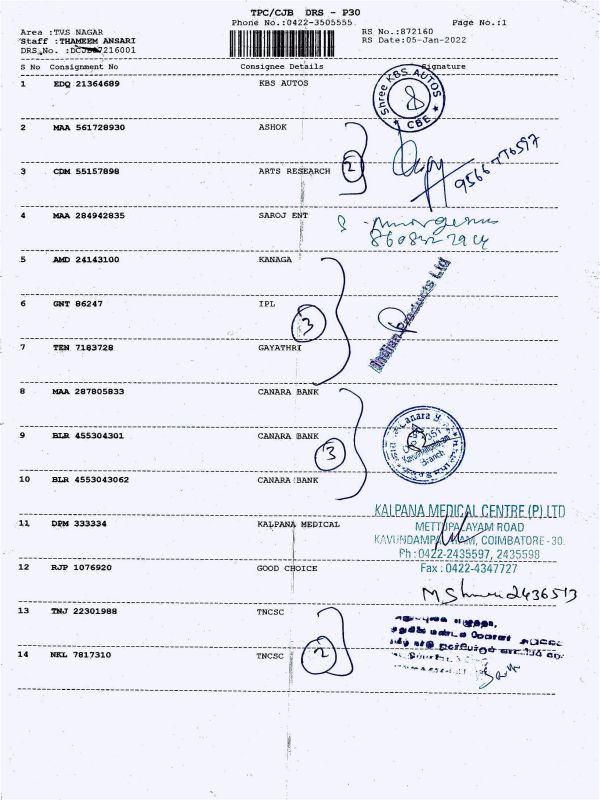 TPC/CJB DRS - P30
Phone No.:0422-3505555 Page No.:1
Area :TVS NAGAR RS No.:872160
Staff :THAMEEM ANSARI RS Date:05-Jan-2022
DRS No. :DCJB 7216001
S No Consignment No Consignee Details Signature
1 EDQ 21364689 KBS AUTOS
Shree KBS AUTOS
★ CBE ★
8
2 MAA 561728930 ASHOK
2
3 CDM 55157898 ARTS RESEARCH
4 MAA 284942835 SAROJ ENT
5 AMD 24143100 KANAGA
6 GNT 86247 IPL
3
Indian Products Ltd
7 TEN 7183728 GAYATHRI
8 MAA 287805833 CANARA BANK
9 BLR 455304301 CANARA BANK
3
Canara
Branch
10 BLR 4553043062 CANARA BANK
KALPANA MEDICAL CENTRE (P) LTD
METTUPALAYAM ROAD
11 DPM 333334 KALPANA MEDICAL
KAVUNDAMPALAYAM, COIMBATORE - 30.
Ph : 0422-2435597, 2435598
Fax : 0422-4347727
12 RJP 1076920 GOOD CHOICE
2436513
13 TNJ 22301988 TNCSC
2
14 NKL 7817310 TNCSC